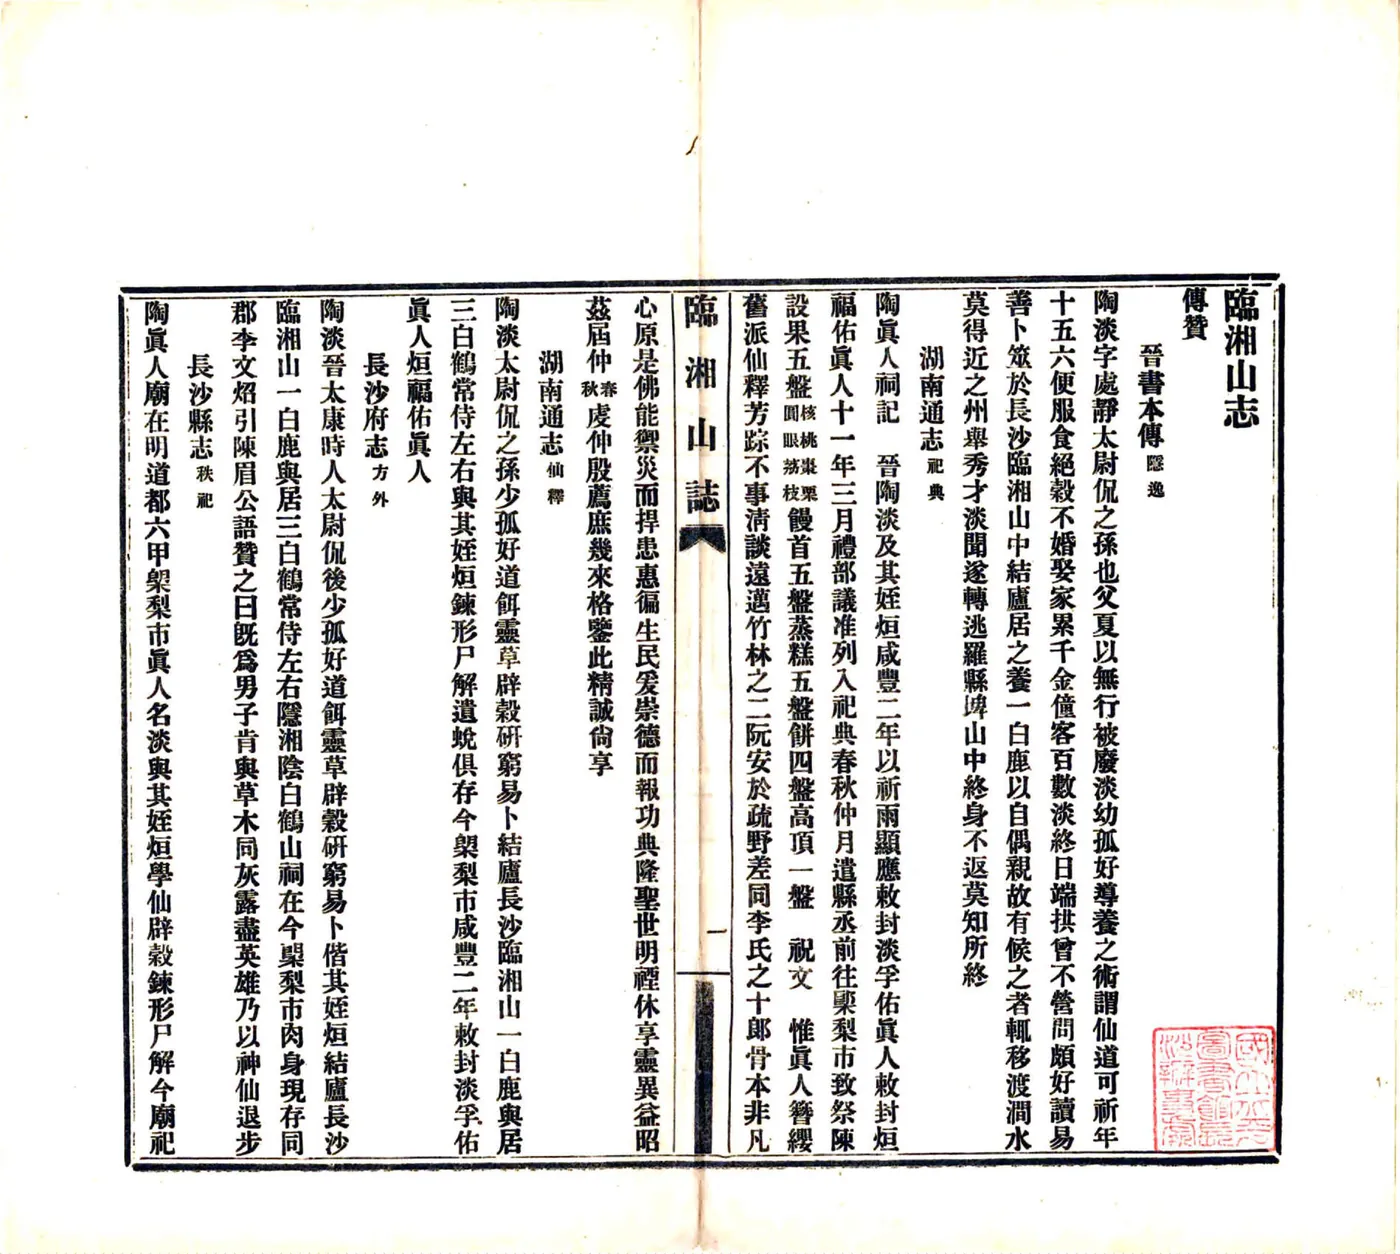 臨湘山志
傳贊
晉書本傳隱逸
陶淡字處靜太尉侃之孫也父夏以無行被廢淡幼孤好導養之術謂仙道可祈年
十五六便服食絕穀不婚娶家累千金僮客百數淡終日端拱曾不營問頗好讀易
善卜筮於長沙臨湘山中結廬居之養一白鹿以自偶親故有候之者輒移渡澗水
莫得近之州舉秀才淡聞遂轉逃羅縣埤山中終身不返莫知所終
湖南通志祀典
陶眞人祠記　晉陶淡及其姪烜咸豐二年以祈雨顯應敕封淡孚佑眞人敕封烜
福佑眞人十一年三月禮部議准列入祀典春秋仲月遣縣丞前往㮚梨市致祭陳
設果五盤核桃棗栗圓眼荔枝饅首五盤蒸糕五盤餅四盤高頂一盤　祝文　惟眞人簪纓
舊派仙釋芳踪不事淸談遠邁竹林之二阮安於疏野差同李氏之十郞骨本非凡
臨湘山誌
一
心原是佛能禦災而捍患惠徧生民爰崇德而報功典隆聖世明禋休享靈異益昭
茲屆仲春秋虔仲殷薦庶幾來格鑒此精誠尙享
湖南通志仙釋
陶淡太尉侃之孫少孤好道餌靈草辟穀硏窮易卜結廬長沙臨湘山一白鹿與居
三白鶴常侍左右與其姪烜鍊形尸解遺蛻俱存今㮚梨市咸豐二年敕封淡孚佑
眞人烜福佑眞人
長沙府志方外
陶淡晉太康時人太尉侃後少孤好道餌靈草辟穀硏窮易卜偕其姪烜結廬長沙
臨湘山一白鹿與居三白鶴常侍左右隱湘陰白鶴山祠在今㮚梨市肉身現存同
郡李文炤引陳眉公語贊之曰旣爲男子肯與草木同灰露盡英雄乃以神仙退步
長沙縣志秩祀
陶眞人廟在明道都六甲㮚梨市眞人名淡與其姪烜學仙辟穀鍊形尸解今廟祀